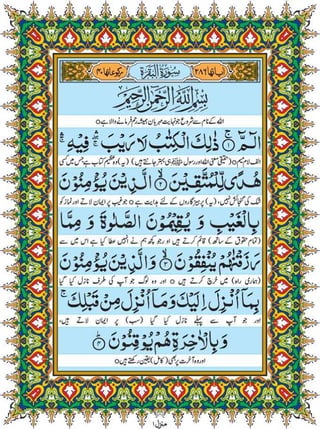 اٰیاتھا ٢٨٦ سُوْرَةُ الْبَقَرَةِ رکوعاتھا ٤٠
بِسْمِ اللّٰهِ الرَّحْمٰنِ الرَّحِیْمِ
اللہ کے نام سے شروع جو نہایت مہربان ہمیشہ رحم فرمانے والا ہے ○
الٓمّٓ ۚ ذٰلِكَ الْكِتٰبُ لَا رَیْبَ ۛ فِیْهِ ۛ
الف لام میم ○ (حقیقی معنی اللہ اور رسول ﷺ ہی بہتر جانتے ہیں) (یہ) وہ عظیم کتاب ہے جس میں کسی
هُدًی لِّلْمُتَّقِیْنَ ۙ الَّذِیْنَ یُؤْمِنُوْنَ
شک کی گنجائش نہیں، (یہ) پرہیزگاروں کے لئے ہدایت ہے ○ جو غیب پر ایمان لاتے اور نماز کو
بِالْغَیْبِ وَ یُقِیْمُوْنَ الصَّلٰوةَ وَ مِمَّا
(تمام حقوق کے ساتھ) قائم کرتے ہیں اور جو کچھ ہم نے انہیں عطا کیا ہے اس میں سے
رَزَقْنٰهُمْ یُنْفِقُوْنَ ۙ وَالَّذِیْنَ یُؤْمِنُوْنَ
(ہماری راہ) میں خرچ کرتے ہیں ○ اور وہ لوگ جو آپ کی طرف نازل کیا گیا
بِمَاۤ اُنْزِلَ اِلَیْكَ وَمَاۤ اُنْزِلَ مِنْ قَبْلِكَ ۚ
اور جو آپ سے پہلے نازل کیا گیا (سب) پر ایمان لاتے ہیں،
وَبِالْاٰخِرَةِ هُمْ یُوْقِنُوْنَ ؕ
اور وہ آخرت پر بھی (کامل) یقین رکھتے ہیں ○
منزل ١